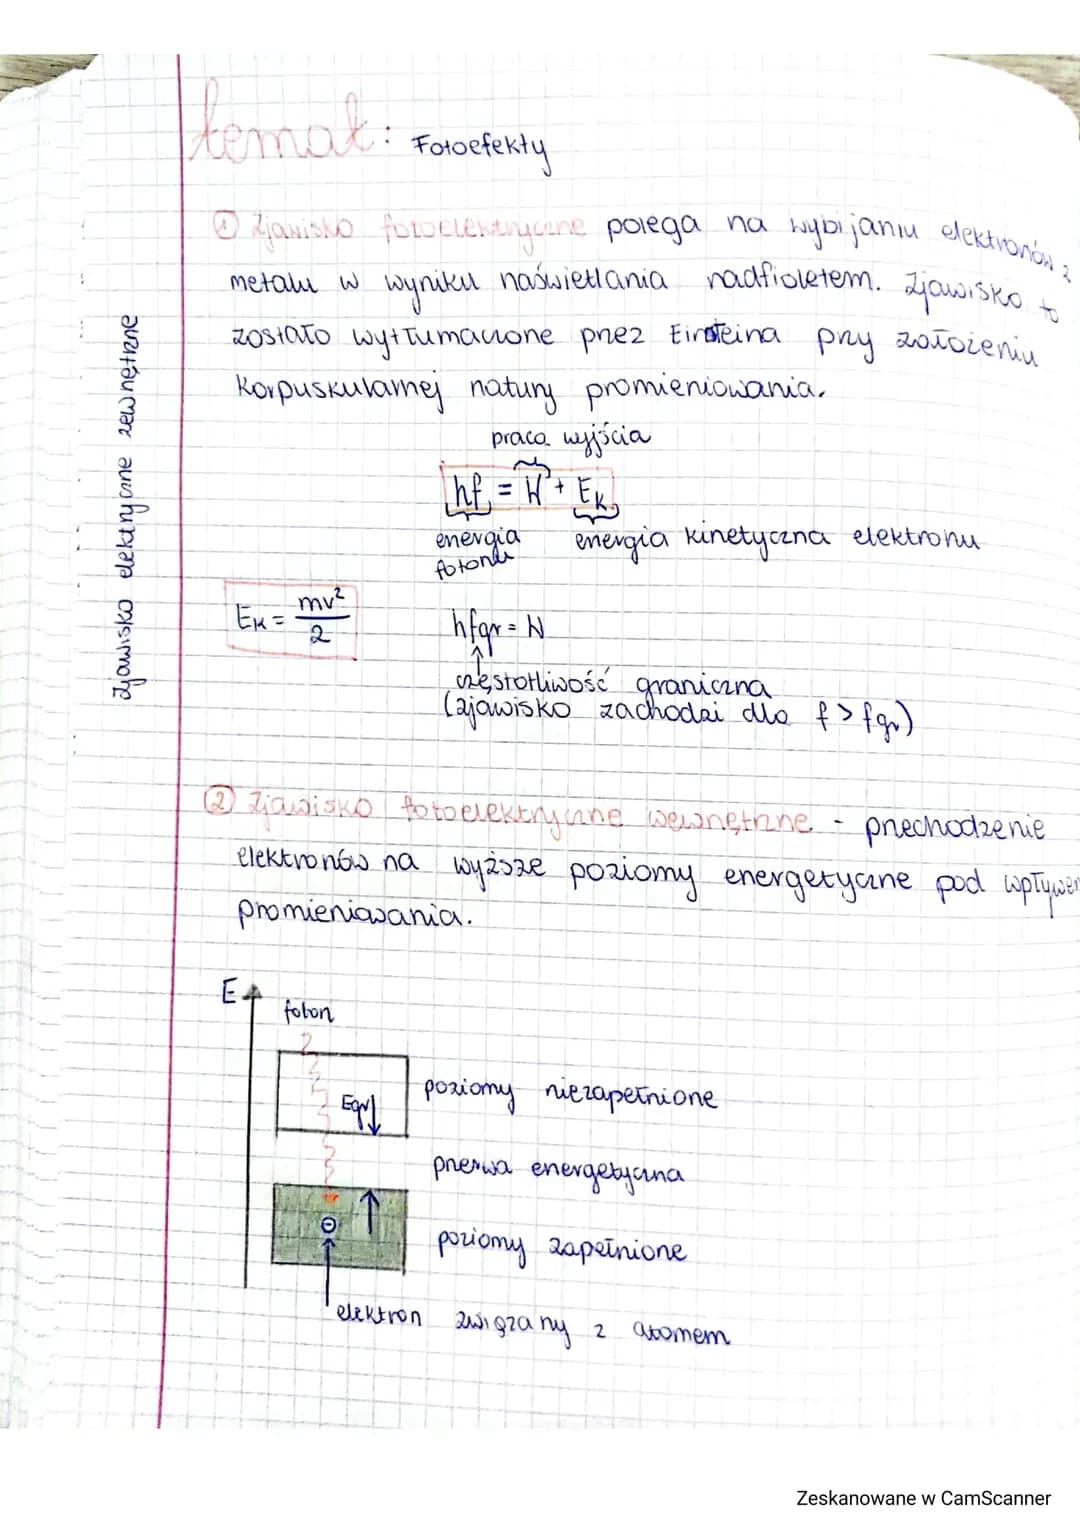 temat: Fotoefekty
① Zjawisko fotoelektryczne polega na wybijaniu elektronów z
metalu w wyniku naświetlania nadfioletem. Zjawisko to
zostało wytłumaczone przez Einsteina przy założeniu
korpuskularnej natury promieniowania.
praca wyjścia
hf = W + Ek
energia energia kinetyczna elektronu
fotonu
Ek = mv²/2
hfgr = W
częstotliwość graniczna
(zjawisko zachodzi dla f > fgr)
zjawisko elektryczne zewnętrzne
② Zjawisko fotoelektryczne wewnętrzne - przechodzenie
elektronów na wyższe poziomy energetyczne pod wpływem
promieniowania.
E
foton
Egr
poziomy niezapełnione
przerwa energetyczna
poziomy zapełnione
elektron związany z atomem
Zeskanowane w CamScanner